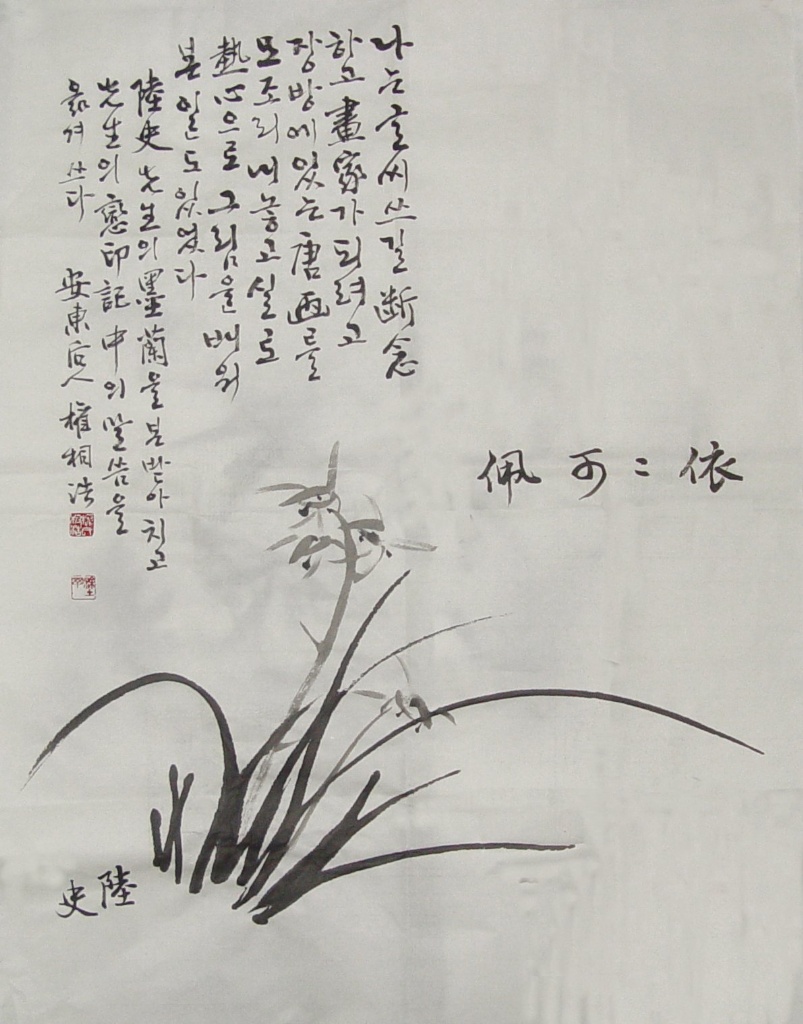 나는 글씨 쓰길 断念
하고 畫家가 되려고
장방에 있는 唐画를
모조리 내놓고 실로
熱心으로 그림을 배워
본 일도 있었다
陸史 先生의 墨蘭을 본받아 치고
先生의 戀印記 中의 말씀을
옮겨 쓰다 安東后人 權相浩
依〻可佩
陸史